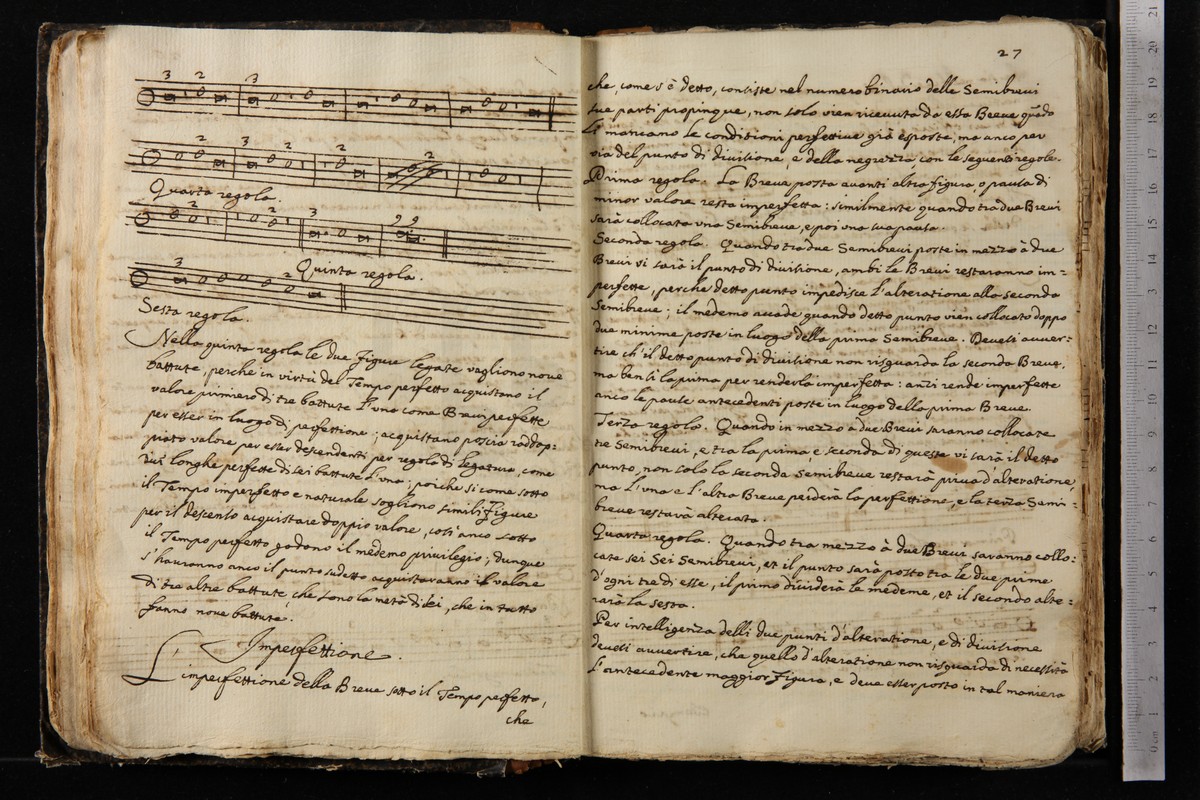 3 2 3
2 3 2 2 2
Quarta regola.
2 2 3 2 2
Quinta regola.
3 2
Sesta regola.
Nella quinta regola le due Figure legate vagliono nove
battute, perche in virtù del Tempo perfetto acquistano il
valore primiero di tre battute l'una come Brevi perfette
per esser in luogo di perfettione; acquistano poscia raddop-
piato valore per esser descendenti per regola di legatura, come
due longhe perfette di sei battute l'una; perche si come sotto
il Tempo imperfetto e naturale sogliono simili Figure
per il descenso acquistare doppio valore, così anco sotto
il Tempo perfetto godono il medemo privilegio; dunque
s'hauranno anco il punto sudetto acquistaranno il valore
di tre altre battute che sono la metà di sei, che in tutto
fanno nove battute.
Imperfettione.
L'imperfettione della Breve sotto il Tempo perfetto,
che
27
che, come s'è detto, consiste nel numero binario delle Semibrevi
sue parti propinque, non solo vien ricevuta da essa Breve quãdo
li mancano le conditioni perfettive già esposte, ma anco per
via del punto di divisione, e della negrezza con le seguenti regole.
Prima regola. La Breve posta avanti altra figura, o pausa di
minor valore resta imperfetta: similmente quando tra due Brevi
sarà collocata una Semibreve, e poi una sua pausa.
Seconda regola. Quando tra due Semibrevi poste in mezzo à due
Brevi vi sarà il punto di divisione, ambi le Brevi restaranno im-
perfette, perche detto punto impedisce l'alteratione alla seconda
Semibreve; il medemo accade quando detto punto vien collocato doppo
due minime poste in luogo della prima Semibreve. Devesi auver-
tire ch'il detto punto di divisione non risguarda la seconda Breve,
ma bensì la prima per renderla imperfetta: anzi rende imperfette
anco le pause antecedenti poste in luogo della prima Breve.
Terza regola. Quando in mezzo à due Brevi saranno collocate
tre Semibrevi, e tra la prima e seconda di queste vi sarà il detto
punto, non solo la seconda Semibreve restarà priva d'alteratione,
ma l'una e l'altra Breve perderà la perfettione, e la terza Semi-
breve restarà alterata.
Quarta regola. Quando tra mezzo à due Brevi saranno collo-
cate sei Semibrevi, et il punto sarà posto tra le due prime
d'ogni tre di esse, il primo dividerà le medeme, et il secondo alte-
rarà la sesta.
Per intelligenza delli due punti d'alteratione, e di divisione
devesi avvertire, che quello d'alteratione non risguarda di necessità
l'antecedente maggior Figura, e deve esser posto in tal maniera